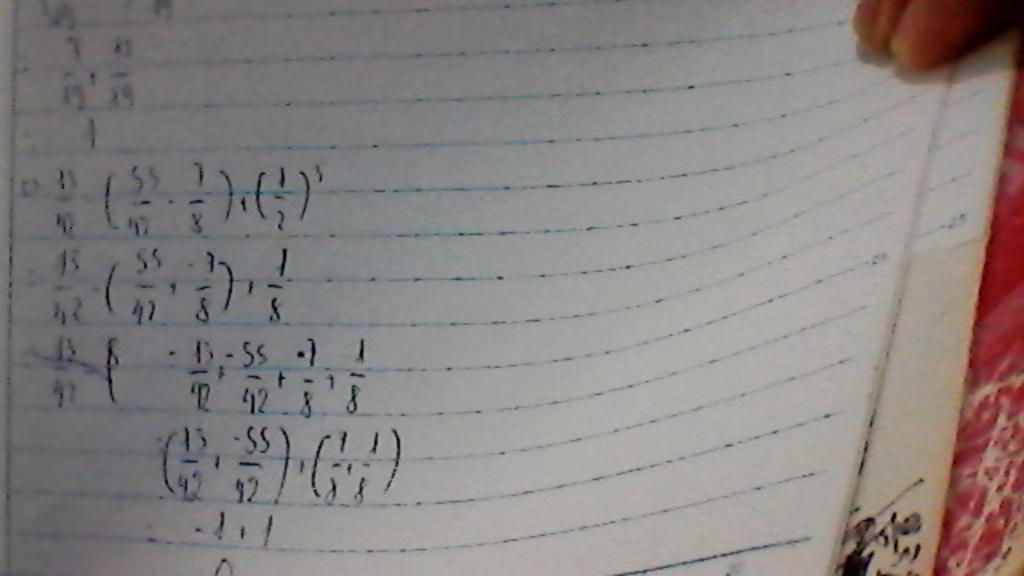 7/19 + 12/19
1
13/42 - (55/42 - 7/8) + (1/2)³
= 13/42 - (55/42 + -7/8) + 1/8
13/42 ( = 13/42 + -55/42 + 7/8 + 1/8
= (13/42 + -55/42) + (7/8 + 1/8)
= -1 + 1
0